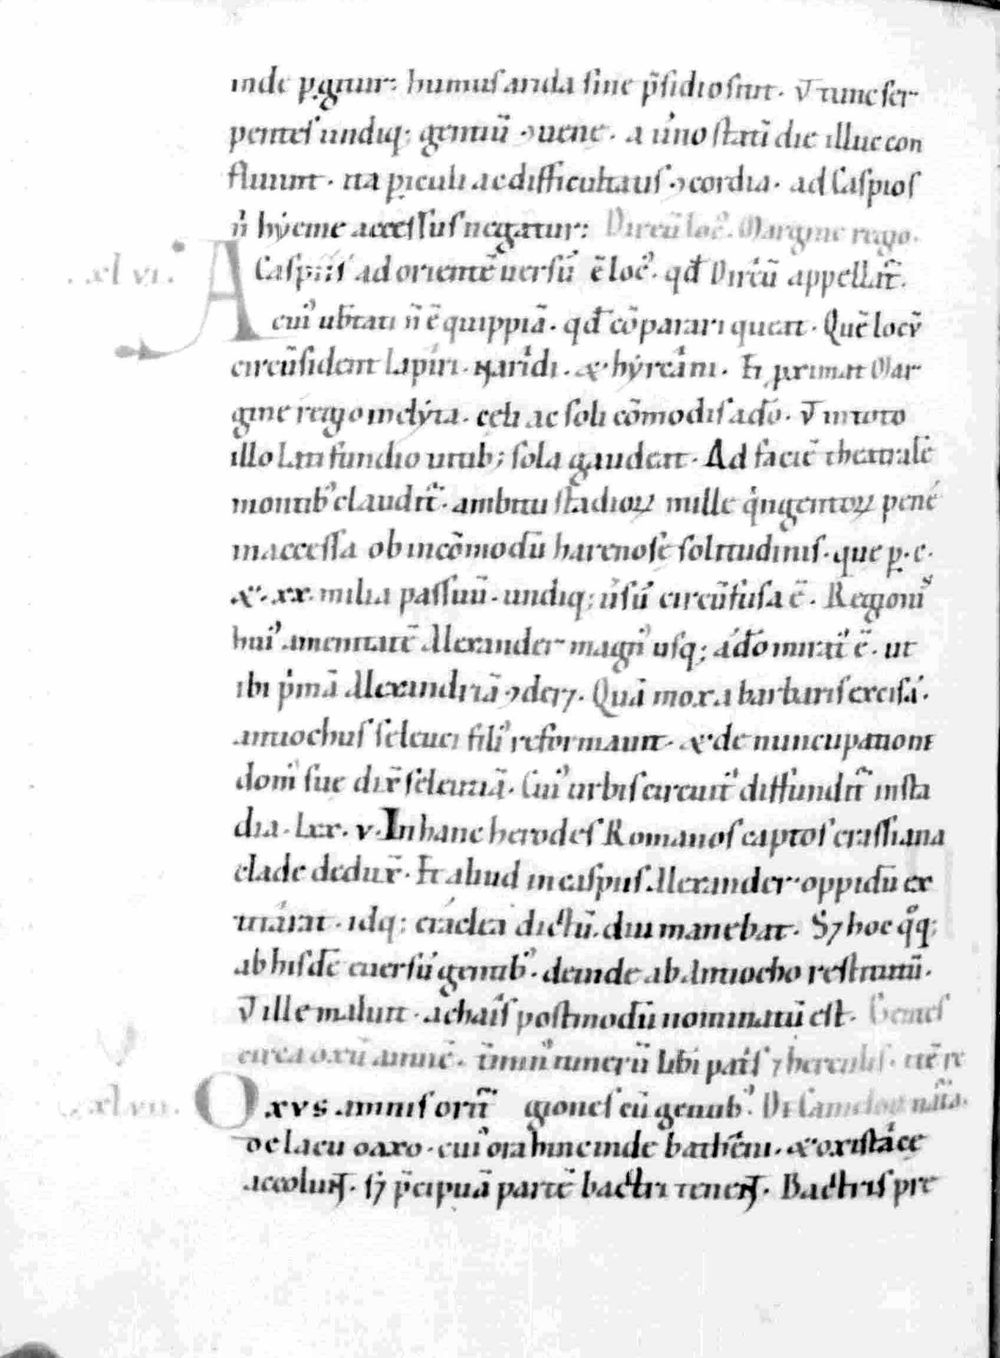 inde p̱gnitur: humus arida sine p̄sidio sitit. v̄ tunc ser
pentes undiq; gentiū ↄuene. a u̓no stati die illuc con
fluunt. ita p̱iculi ac difficultatis ↄcordia. ad Caspios
n̄ hyeme accessus negatur: Direū loc̓. Margine regio.
.xl vi. A Caspiis ad orientē uersū ē loc̓. qđ Direū appellat̄.
cui̓ ubtati n̄ ē quippiā. qđ cōparari queat. Quē locū
circūsident lapiri. Naridi. & hyrcani. Et p̱ximat Mar
gine regio inclyta. celi ac soli cōmodis adō. v̄ in toto
illo lati fundio uitib; sola gaudeat. Ad faciē theatralē
montib̓ claudit̄. ambitu stadioꝝ mille q̓ngentoꝝ pene
inaccessa ob incōmodū harenose solitudinis. que p̱. c.
&. xx. milia passuū. undiq; u̓sū circūfusa ē. Regioni̓
hui̓ amenitatē Alexander magn̓ usq; adō mirat̓ ē. ut
ibi p̓mā Alexandriā ↄder⁊. Quā mox a barbaris excisā.
antiochus seleuci fili̓ reformauit. & de nuncupatione
dom̓ sue dix̄ seleuciā. Cui̓ urbis circuit̓ diffundit̄ in sta
dia. lxx. v. In hanc herodes Romanos captos crassiana
clade dedux̄. Et aliud in caspiis Alexander oppidū ex
citarat. idq; eraclea dictū. diu manebat. S⁊ hoc q̊q;
ab hisdē euersū gentib̓. deinde ab Antiocho restitutū.
v̄ ille maluit. achais postmodū nominatū est. Gentes
circa oxū amnē. t̄min̓ itinerū libi pat̓s ⁊ herculis. itē re
.xl vii. Oxvs amnis orit̄ giones cū gentib̓. De Cameloꝝ nat̄a.
de lacu oaxo. cui̓ ora hinc inde batheni. & oxistace
accolunt. s⁊ p̄cipuā partē bactri tenent. Bactris pre